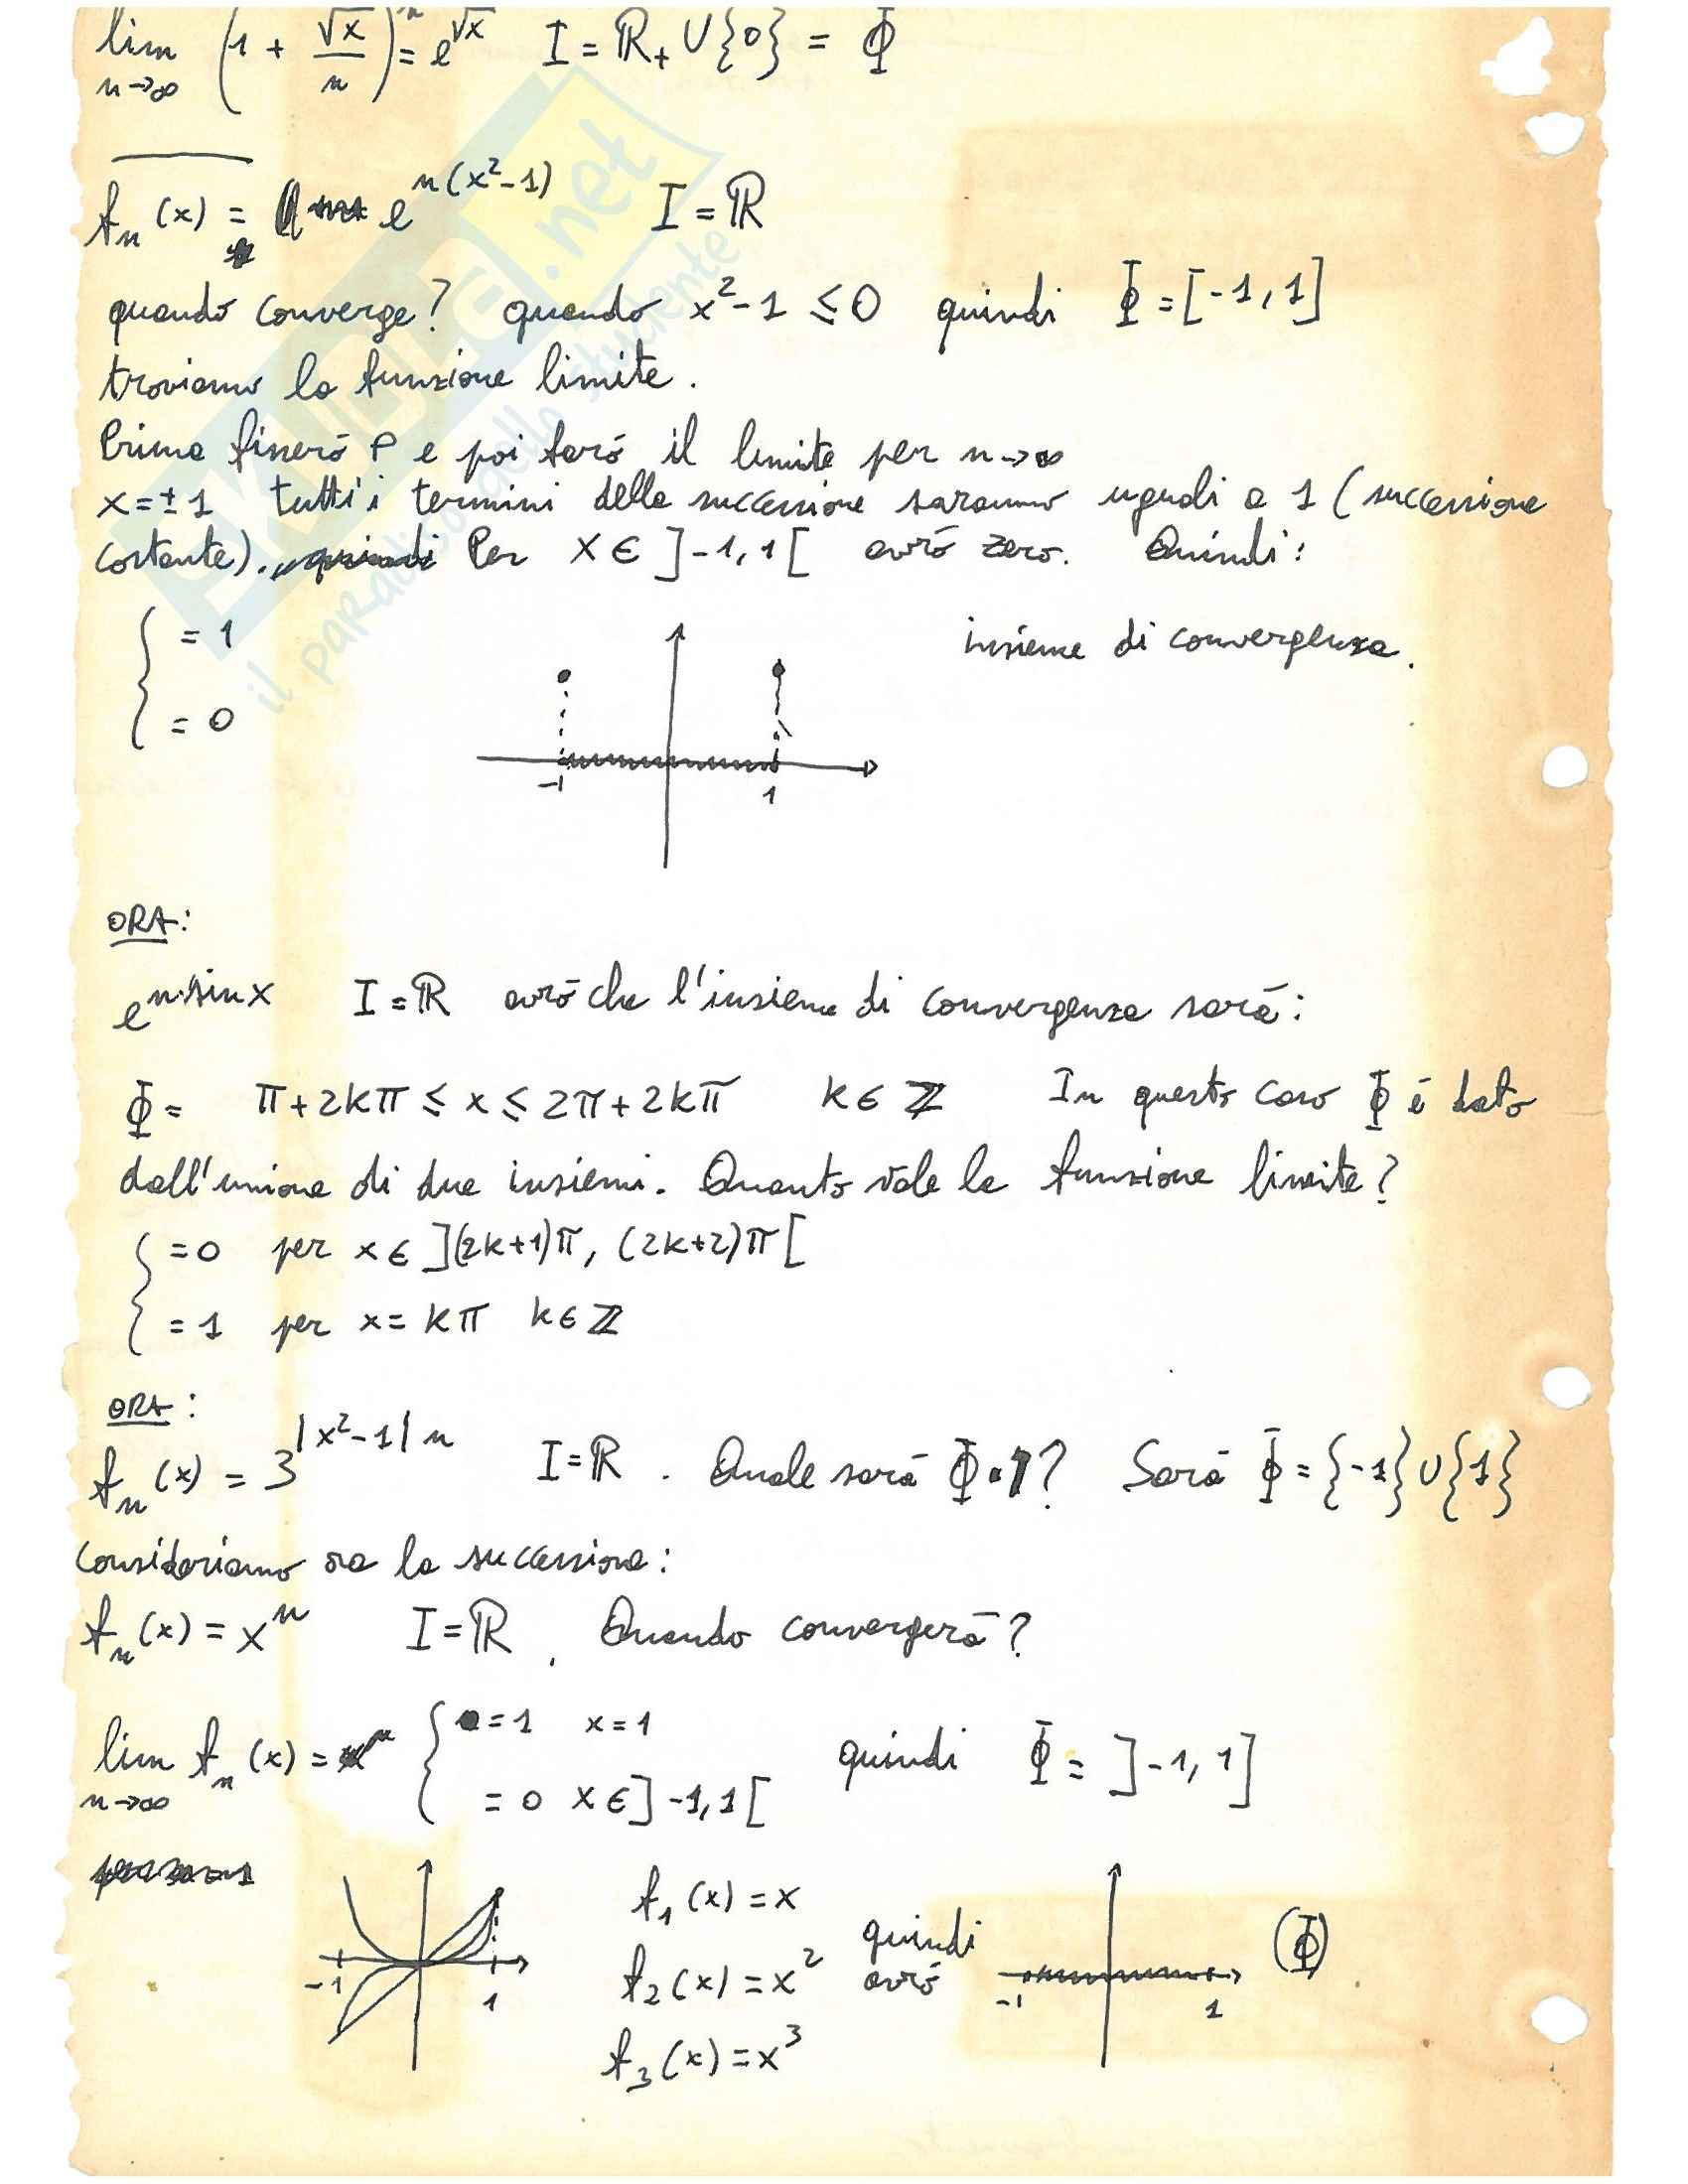 lim (1 + √x/n)^n = e^√x I = ℝ₊ ∪ {0} = Φ
n→∞
fₙ(x) = e^n(x²-1) I = ℝ
quando converge? quando x²-1 ≤ 0 quindi Φ = [-1, 1]
troviamo la funzione limite.
Prima fisserò e poi farò il limite per n→∞
x = ±1 tutti i termini della successione saranno uguali a 1 (successione
costante). Per x ∈ ]-1, 1[ avrò zero. Quindi:
{ = 1
= 0
insieme di convergenza.
-1 1
ORA:
e^n·sinx I = ℝ avrò che l'insieme di convergenza sarà:
Φ = π+2kπ ≤ x ≤ 2π+2kπ k ∈ ℤ In questo caso Φ é dato
dall'unione di due insiemi. Quanto vale la funzione limite?
{ = 0 per x ∈ ](2k+1)π, (2k+2)π[
= 1 per x = kπ k ∈ ℤ
ORA:
fₙ(x) = 3^|x²-1|n I = ℝ. Quale sarà Φ? Sarà Φ = {-1} ∪ {1}
Consideriamo ora la successione:
fₙ(x) = xⁿ I = ℝ. Quando convergerà?
lim fₙ(x) = { = 1 x = 1
n→∞ = 0 x ∈ ]-1, 1[
quindi Φ = ]-1, 1]
-1 1
f₁(x) = x
f₂(x) = x²
f₃(x) = x³
quindi
avrò
-1 1
(Φ)
.net
il paradiso dello studente